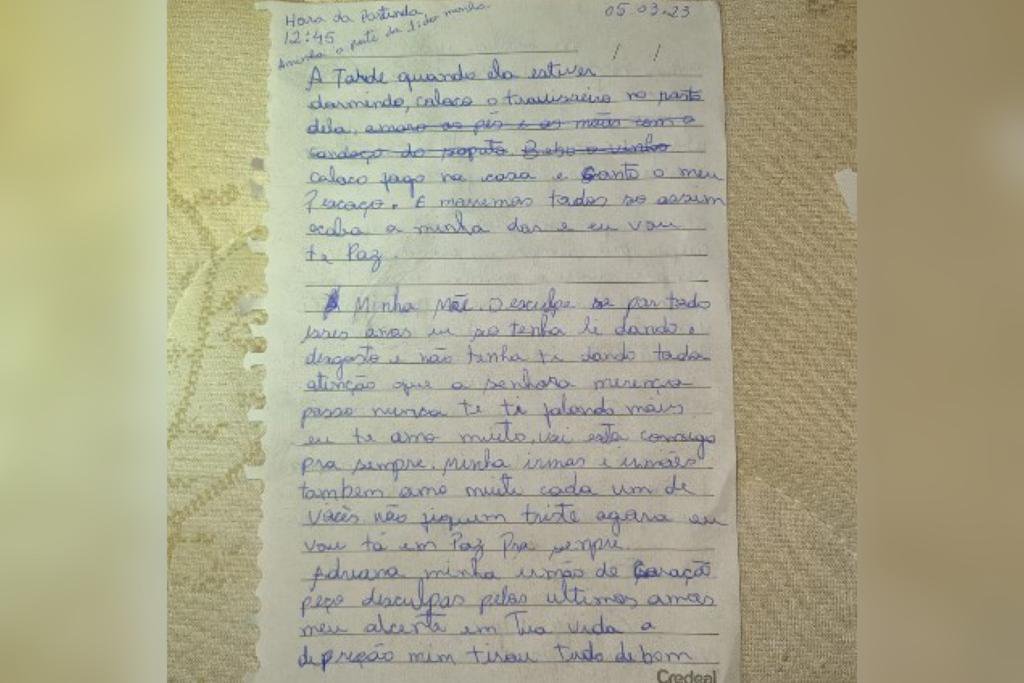 Hora da Partida
05 03.23
12:45
/ /
A Tarde quando ela estiver
dormindo, coloco o travisseiro no rosto
dela. amaro os pés e as mãos com o
do sapato. Bebo o vinho
coloco fogo na casa e Canto o meu
Pescoço. E morremos todos so assim
acaba a minha dor e eu vou
te Paz.
Minha Mãe. Desculpe se por todo
esses anos eu so tenha te dando
desgosto e não tenha te dando toda
atenção que a senhora merencia
posso nunca te ti falando mais
eu te amo muito, vai esta comsigo
pra sempre. Minha irmas e irmãos
tambem amo muito cada um de
vocês não fiquem triste agora eu
vou tá em Paz Pra sempre.
Adriana minha irmão de Coração
peço desculpas pelos ultimos anos
meu em Tua vida a
depreção mim tirou tudo de bom
Credeal